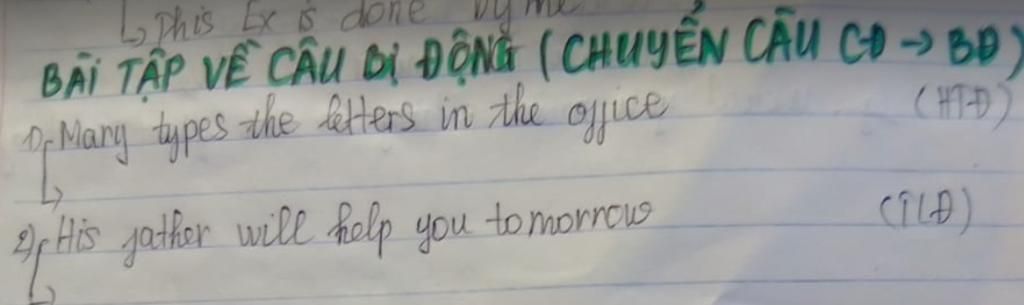 ↳ This Ex is done by me
BÀI TẬP VỀ CÂU BỊ ĐỘNG (CHUYỂN CÂU CĐ → BĐ)
1) Mary types the letters in the office (HTĐ)
2) His father will help you tomorrow (TLĐ)